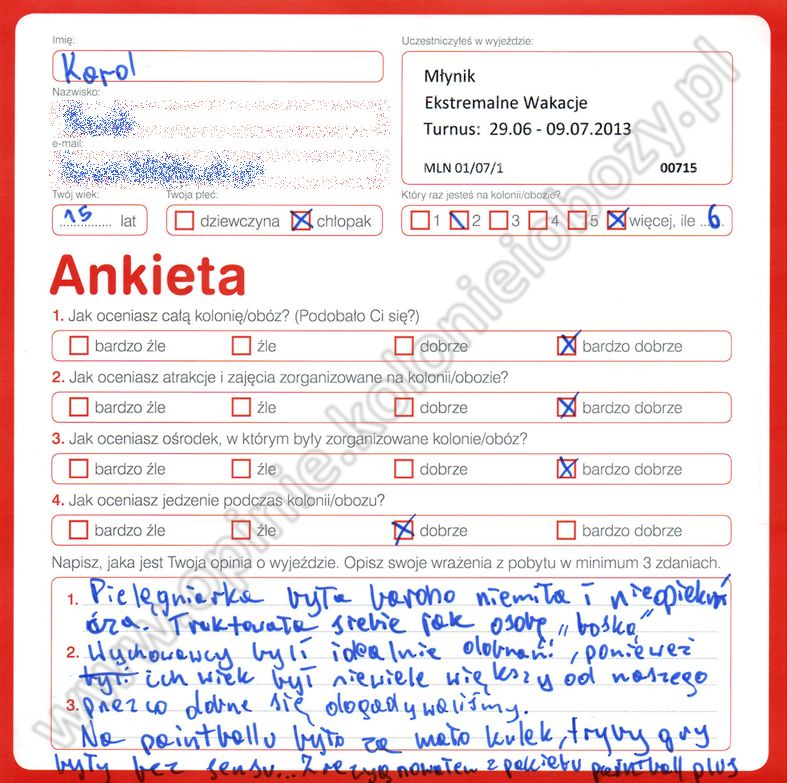 Imię:
Uczestniczyłeś w wyjeździe:
Karol
Młynik
Nazwisko:
Ekstremalne Wakacje
Turnus: 29.06 - 09.07.2013
e-mail:
MLN 01/07/1 00715
Twój wiek: Twoja płeć: Który raz jesteś na kolonii/obozie?
15 lat dziewczyna chłopak 1 2 3 4 5 więcej, ile 6
Ankieta
1. Jak oceniasz całą kolonię/obóz? (Podobało Ci się?)
bardzo źle źle dobrze bardzo dobrze
2. Jak oceniasz atrakcje i zajęcia zorganizowane na kolonii/obozie?
bardzo źle źle dobrze bardzo dobrze
3. Jak oceniasz ośrodek, w którym były zorganizowane kolonie/obóz?
bardzo źle źle dobrze bardzo dobrze
4. Jak oceniasz jedzenie podczas kolonii/obozu?
bardzo źle źle dobrze bardzo dobrze
Napisz, jaka jest Twoja opinia o wyjeździe. Opisz swoje wrażenia z pobytu w minimum 3 zdaniach.
1. Pielęgniarka była bardzo niemiła i nieopiekuń
cza. Traktowała siebie jak osobę „boską"
2. Wychowawcy byli idealnie dobrani, ponieważ
byli ich wiek był niewiele większy od naszego
3. przez co dobrze się dogadywaliśmy.
Na paintballu było za mało kulek, tryby gry
były bez sensu... Zrezygnowałem z pakietu paintball plus
www.opinie.kolonieiobozy.pl